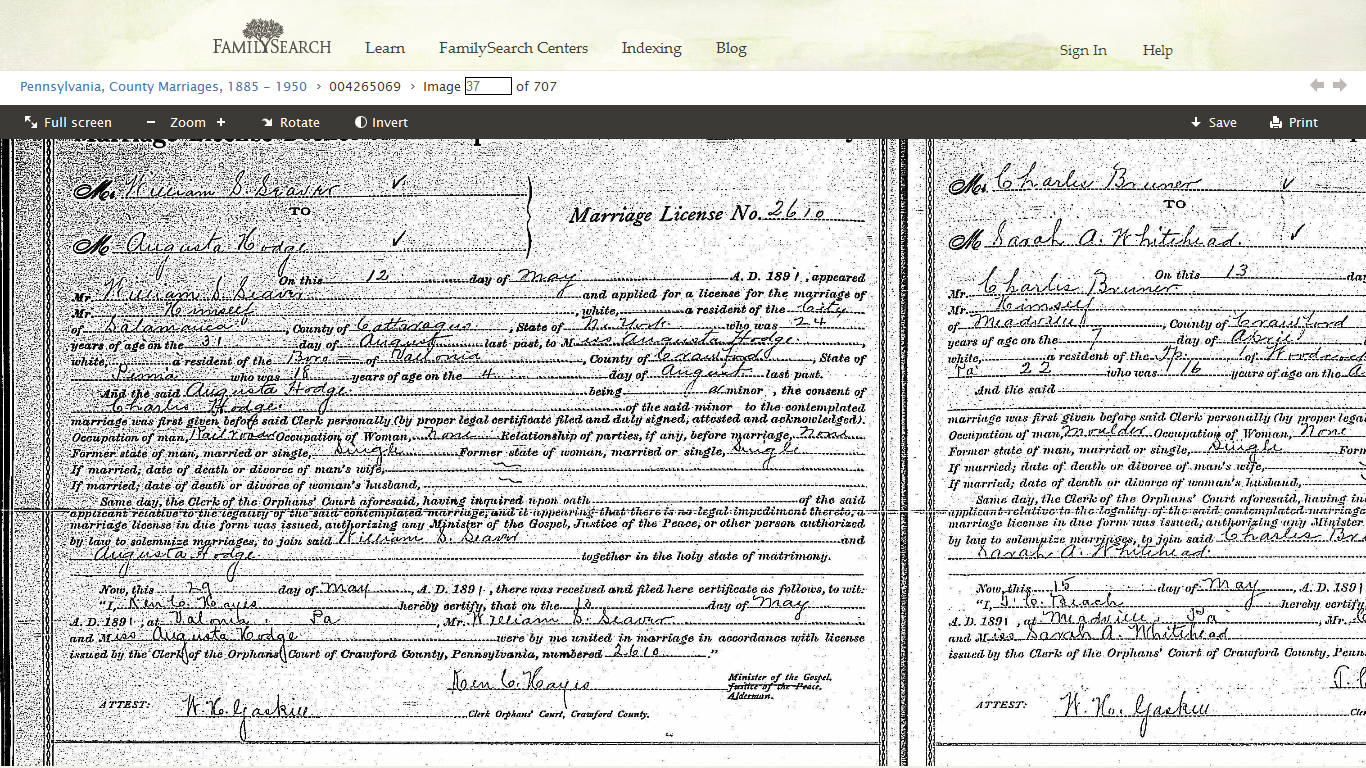 FAMILYSEARCH
Learn FamilySearch Centers Indexing Blog
Sign In Help
Pennsylvania, County Marriages, 1885 – 1950 › 004265069 › Image 37 of 707
Full screen − Zoom + Rotate Invert Save Print
Mr. William S. Seaver
TO
M Augusta Hodge
Marriage License No. 2610
On this 12 day of May A. D. 1891, appeared
Mr. William S. Seaver and applied for a license for the marriage of
Mr. Himself, white, a resident of the City
of Salamanca, County of Cattaragus, State of N. York who was 24
years of age on the 31 day of August last past, to Miss Augusta Hodge,
white, a resident of the Boro of Vallonia, County of Crawford, State of
Penna who was 18 years of age on the 4 day of August last past.
And the said Augusta Hodge being a minor, the consent of
Charles Hodge of the said minor to the contemplated
marriage was first given before said Clerk personally (by proper legal certificate filed and duly signed, attested and acknowledged).
Occupation of man, Railroad Occupation of Woman, None Relationship of parties, if any, before marriage, None
Former state of man, married or single, Single Former state of woman, married or single, Single
If married; date of death or divorce of man's wife,
If married; date of death or divorce of woman's husband,
Same day, the Clerk of the Orphans' Court aforesaid, having inquired upon oath of the said
applicant relative to the legality of the said contemplated marriage, and it appearing that there is no legal impediment thereto, a
marriage license in due form was issued, authorizing any Minister of the Gospel, Justice of the Peace, or other person authorized
by law to solemnize marriages, to join said William S. Seaver and
Augusta Hodge together in the holy state of matrimony.
Now, this 29 day of May, A. D. 1891, there was received and filed here certificate as follows, to wit:
"I, Ken C. Hayes hereby certify, that on the day of May
A. D. 1891, at Valonia, Pa, Mr. William S. Seaver
and Miss Augusta Hodge were by me united in marriage in accordance with license
issued by the Clerk of the Orphans' Court of Crawford County, Pennsylvania, numbered 2610."
Ken C. Hayes
Minister of the Gospel,
Justice of the Peace,
Alderman.
ATTEST: W. H. Gaskill
Clerk Orphans' Court, Crawford County.
Mr. Charles Bruner
TO
M Sarah A. Whitehead.
On this 13 day
Mr. Charles Bruner
Mr. Himself
of Meadville, County of Crawford
years of age on the 7 day of April
white, a resident of the Tp. of Woodcock
Pa 22 who was 16 years of age on the
And the said
marriage was first given before said Clerk personally (by proper legal
Occupation of man, Moulder Occupation of Woman, None
Former state of man, married or single, Single Form
If married; date of death or divorce of man's wife,
If married; date of death or divorce of woman's husband,
Same day, the Clerk of the Orphans' Court aforesaid, having in
applicant relative to the legality of the said contemplated marriage
marriage license in due form was issued, authorizing any Minister
by law to solemnize marriages, to join said Charles Bru
Sarah A. Whitehead.
Now, this 15 day of May, A. D. 1891
"I, Beach hereby certify
A. D. 1891, at Meadville, Pa, Mr.
and Miss Sarah A. Whitehead
issued by the Clerk of the Orphans' Court of Crawford County, Penn
ATTEST: W. H. Gaskill
Cler